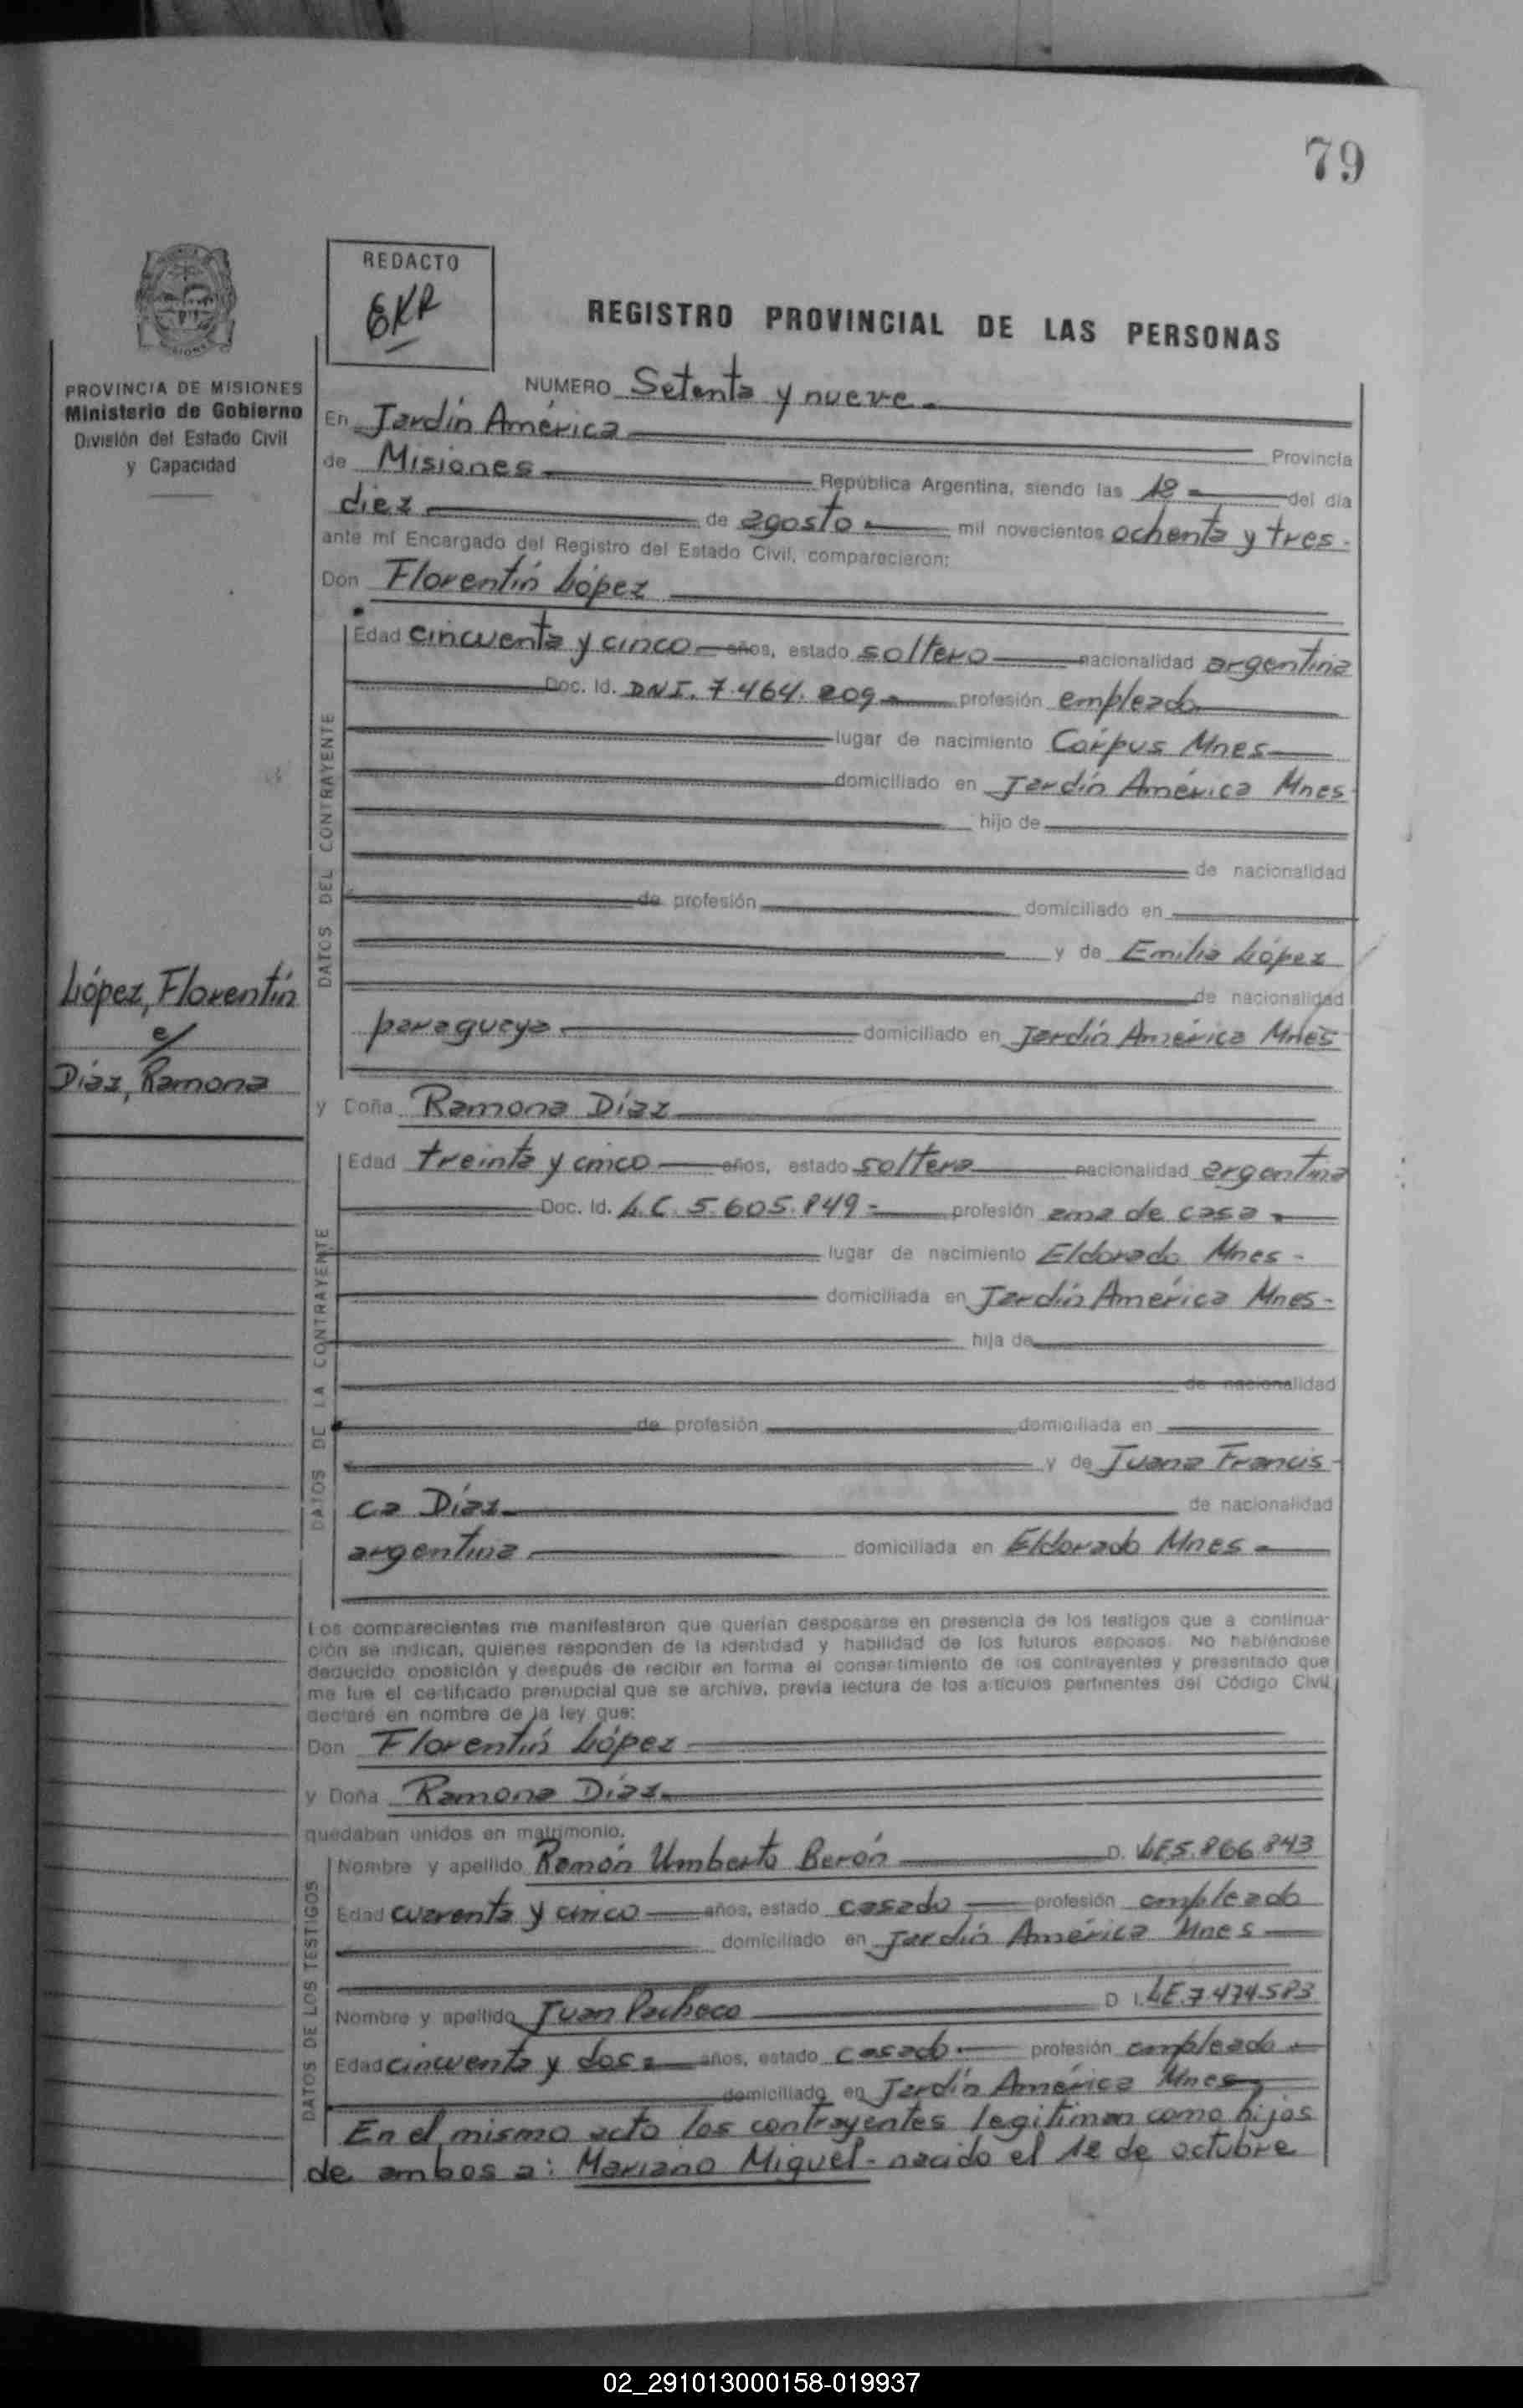 79
REDACTO
EKR
REGISTRO PROVINCIAL DE LAS PERSONAS
PROVINCIA DE MISIONES
Ministerio de Gobierno
División del Estado Civil
y Capacidad
NUMERO Setenta y nueve
En Jardín América Provincia
de Misiones República Argentina, siendo las 12 del día
diez de agosto mil novecientos ochenta y tres
ante mí Encargado del Registro del Estado Civil, comparecieron:
Don Florentín López
DATOS DEL CONTRAYENTE
Edad cincuenta y cinco años, estado soltero nacionalidad argentina
Doc. Id. DNI. 7.464.209 profesión empleado
lugar de nacimiento Corpus Mnes
domiciliado en Jardín América Mnes
hijo de
de nacionalidad
de profesión domiciliado en
y de Emilia López
de nacionalidad
paraguaya domiciliado en Jardín América Mnes
López, Florentín
c/
Díaz, Ramona
y Doña Ramona Díaz
DATOS DE LA CONTRAYENTE
Edad treinta y cinco años, estado soltera nacionalidad argentina
Doc. Id. L.C. 5.605.849 profesión ama de casa
lugar de nacimiento Eldorado Mnes
domiciliada en Jardín América Mnes
hija de
de nacionalidad
de profesión domiciliada en
y de Juana Francis-
ca Díaz de nacionalidad
argentina domiciliada en Eldorado Mnes
Los comparecientes me manifestaron que querían desposarse en presencia de los testigos que a continua-
ción se indican, quienes responden de la identidad y habilidad de los futuros esposos. No habiéndose
deducido oposición y después de recibir en forma el consentimiento de los contrayentes y presentado que
me fue el certificado prenupcial que se archiva, previa lectura de los artículos pertinentes del Código Civil,
declaré en nombre de la ley que:
Don Florentín López
y Doña Ramona Díaz
quedaban unidos en matrimonio.
DATOS DE LOS TESTIGOS
Nombre y apellido Ramón Umberto Berón D. LE 5.866.843
Edad cuarenta y cinco años, estado casado profesión empleado
domiciliado en Jardín América Mnes
Nombre y apellido Juan Pacheco D I. LE 7.474.583
Edad cincuenta y dos años, estado casado profesión empleado
domiciliado en Jardín América Mnes
En el mismo acto los contrayentes legitiman como hijos
de ambos a: Mariano Miguel - nacido el 12 de octubre
02_291013000158-019937